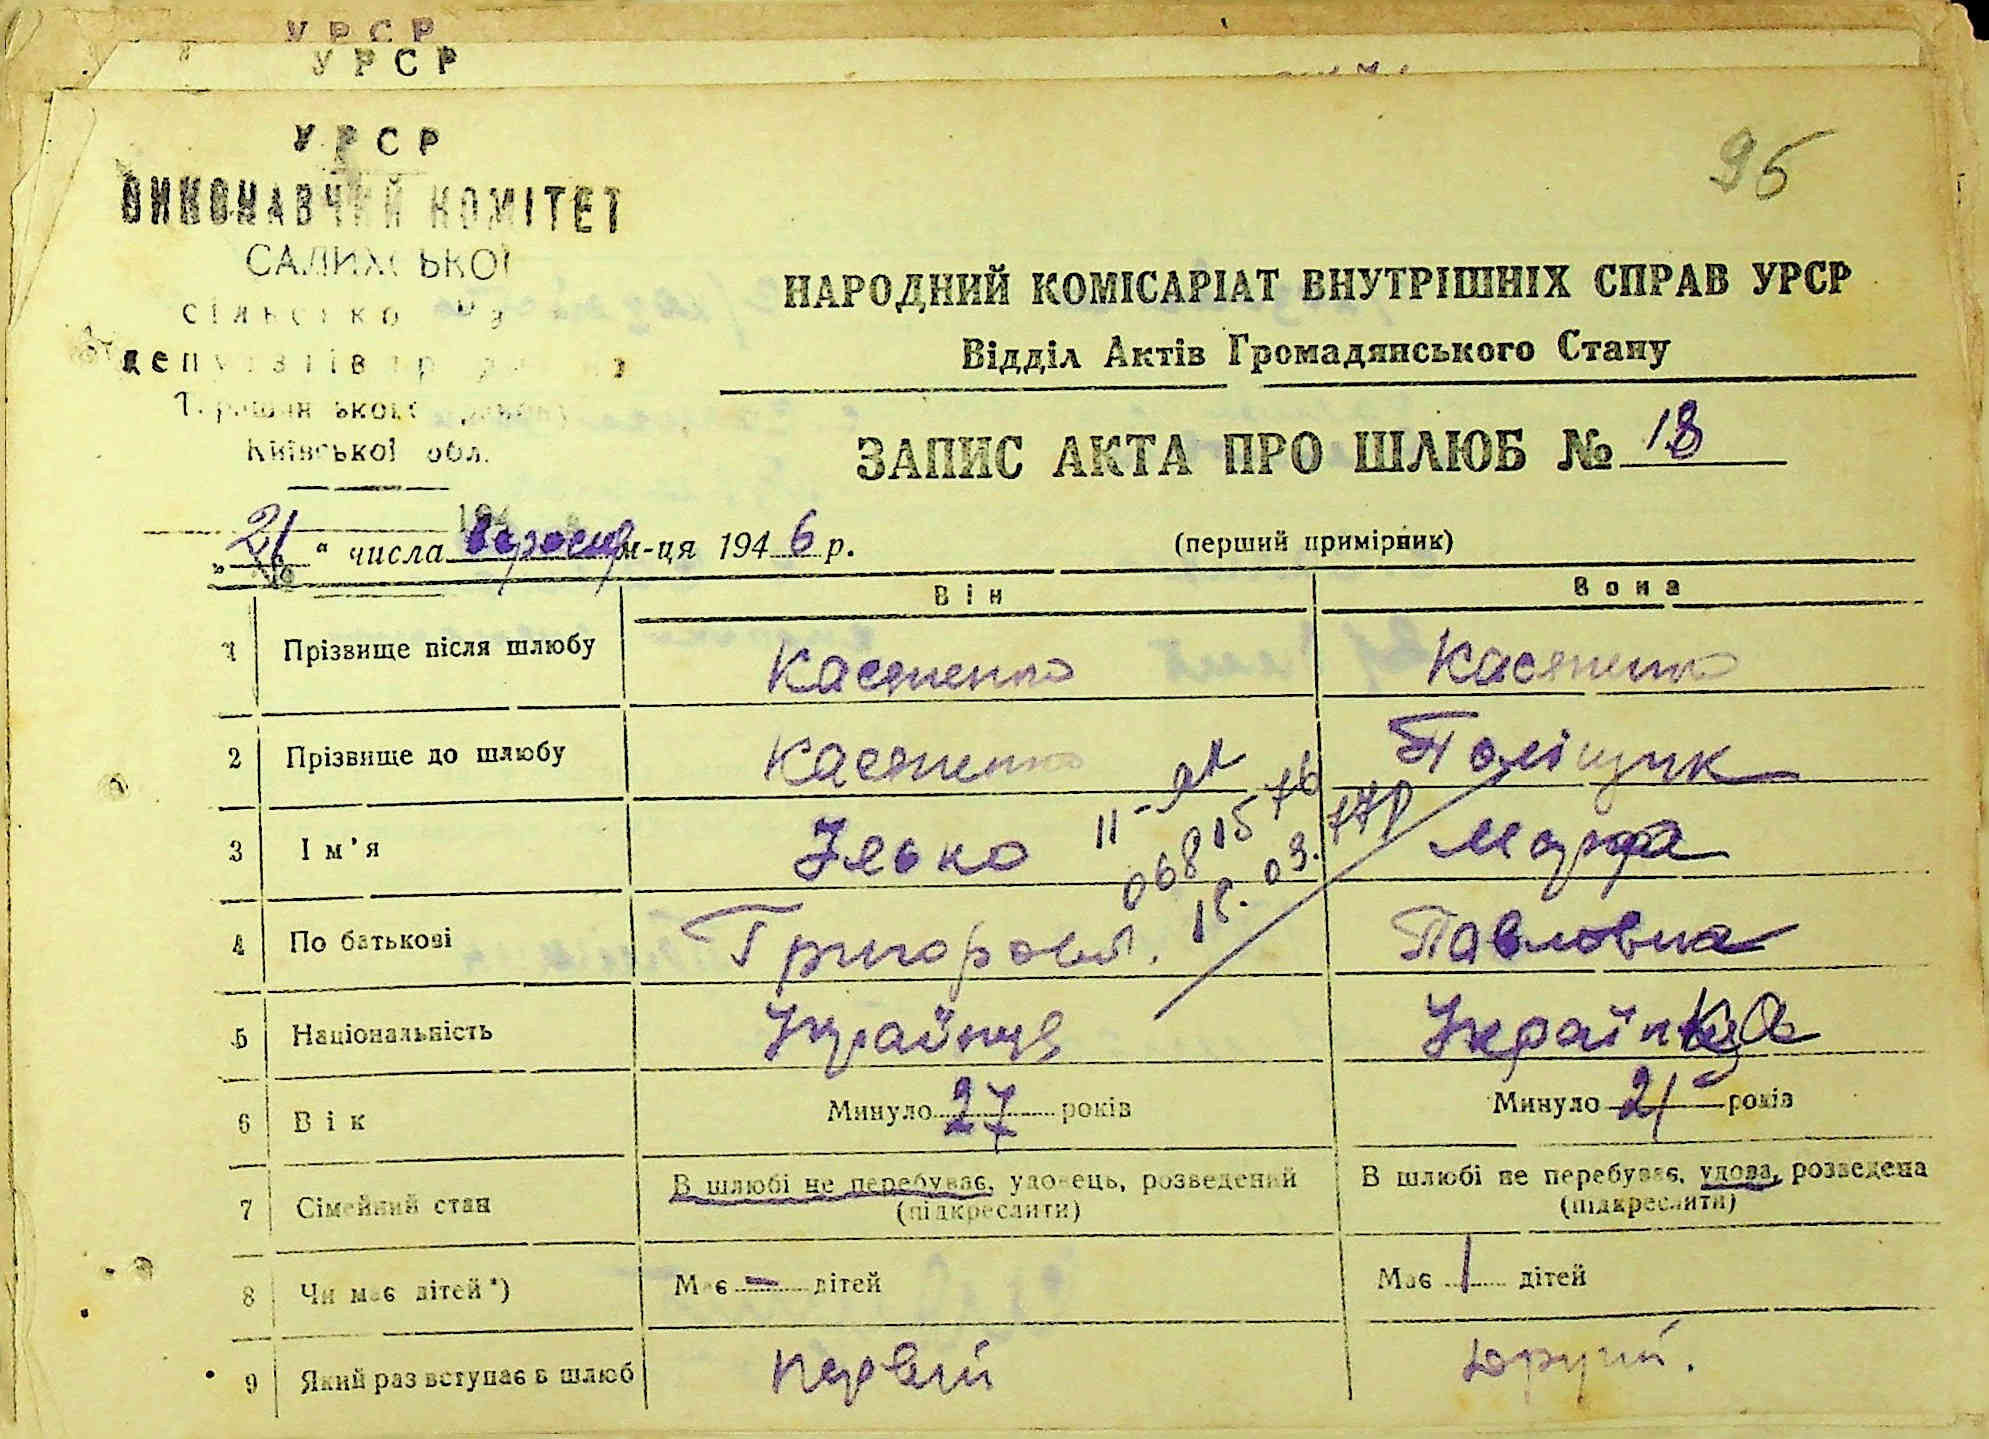 УРСР
УРСР
УРСР
ВИКОНАВЧИЙ КОМІТЕТ
95
САЛИХСЬКОЇ
НАРОДНИЙ КОМІСАРІАТ ВНУТРІШНІХ СПРАВ УРСР
Відділ Актів Громадянського Стану
Київської обл.
ЗАПИС АКТА ПРО ШЛЮБ № 18
„21“ числа вересня м-ця 1946 р.
(перший примірник)
Він Вона
1 Прізвище після шлюбу Касяненко Касяненко
2 Прізвище до шлюбу Касяненко Поліщук
3 Ім'я Ілько Марфа
II-
068 1576
15. 03.
4 По батькові Григоров. Павловна
5 Національність Українця Українка
6 Вік Минуло 27 років Минуло 21 років
7 Сімейний стан В шлюбі не перебуває, удовець, розведений (підкреслити) В шлюбі не перебуває, удова, розведена (підкреслити)
8 Чи має дітей *) Має — дітей Має 1 дітей
9 Який раз вступає в шлюб первий другий.